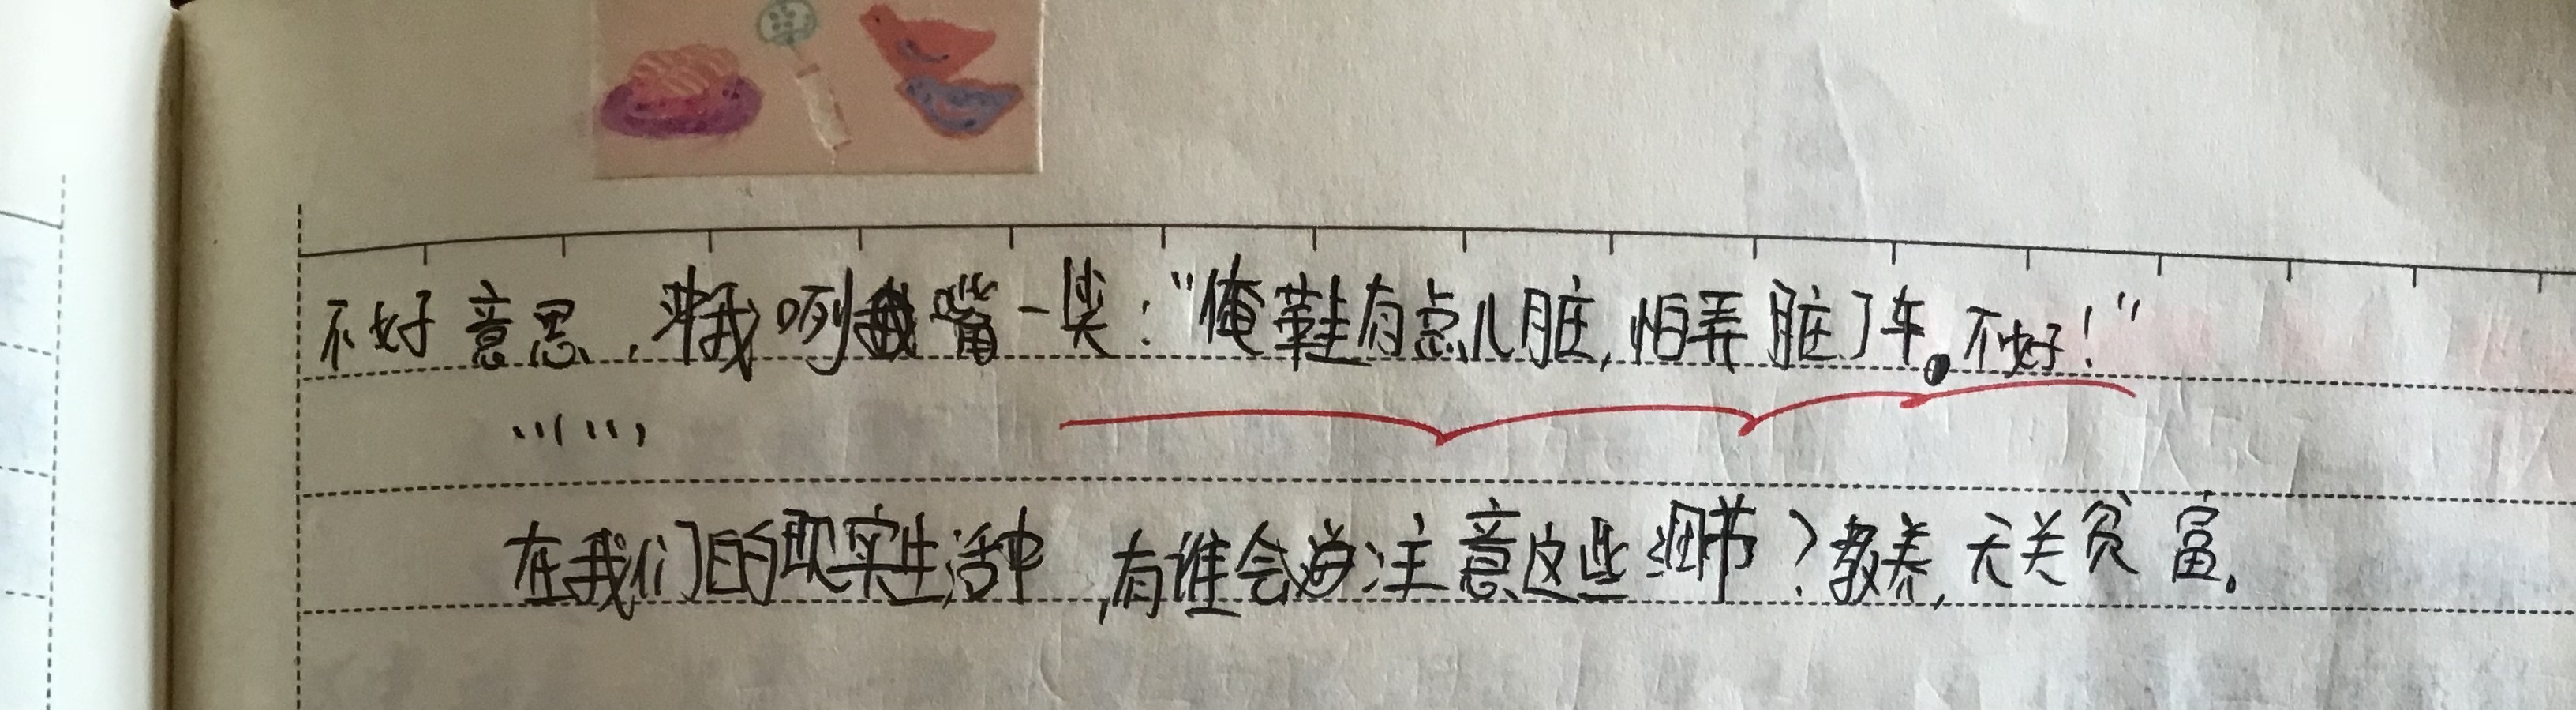 不好意思，冲我咧嘴一笑：“俺鞋有点儿脏，怕弄脏了车。不好！”
……
在我们的现实生活中，有谁会注意这些细节？教养，无关贫富。